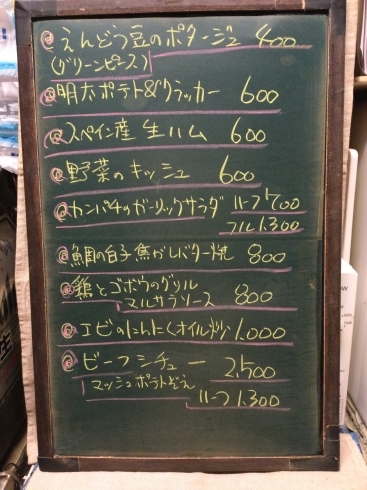 えんどう豆のポタージュ 400
(グリーンピース)
明太ポテト&クラッカー 600
スペイン産 生ハム 600
野菜のキッシュ 600
カンパチのガーリックサラダ ハーフ 700
フル 1.300
鯛の白子 焦がしバター焼 800
鶏とゴボウのグリル
マルサラソース 800
エビのにんにくオイル炒 1.000
ビーフシチュー 2.500
マッシュポテトぞえ
ハーフ 1.300